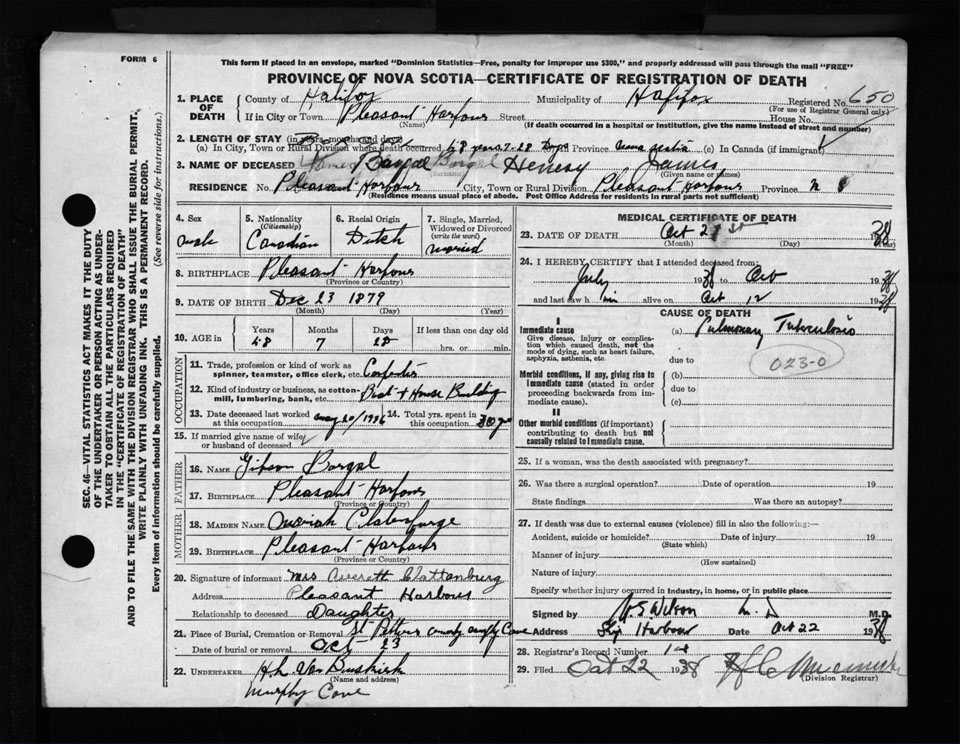 FORM 6
This form if placed in an envelope, marked "Dominion Statistics—Free, penalty for improper use $300," and properly addressed will pass through the mail "FREE"
PROVINCE OF NOVA SCOTIA—CERTIFICATE OF REGISTRATION OF DEATH
1. PLACE OF DEATH County of Halifax Municipality of Halifax Registered No. 650
(For use of Registrar General only)
If in City or Town Pleasant Harbour Street House No.
(Name) (If death occurred in a hospital or institution, give the name instead of street and number)
2. LENGTH OF STAY (in years, months and days)
(a) In City, Town or Rural Division where death occurred 48 years 7-28 Days Province Nova Scotia (c) In Canada (if immigrant)
3. NAME OF DECEASED James Borgal Henery James
(Surname) (Given name or names)
RESIDENCE No. Pleasant Harbour City, Town or Rural Division Pleasant Harbour Province N S
(Residence means usual place of abode. Post Office Address for residents in rural parts not sufficient)
4. Sex 5. Nationality (Citizenship) 6. Racial Origin 7. Single, Married, Widowed or Divorced (write the word)
male Canadian Dutch married
8. BIRTHPLACE Pleasant Harbour
(Province or Country)
9. DATE OF BIRTH Dec 23 1879
(Month) (Day) (Year)
10. AGE in Years Months Days If less than one day old
48 7 28 hrs. or min.
OCCUPATION
11. Trade, profession or kind of work as spinner, teamster, office clerk, etc. Carpenter
12. Kind of industry or business, as cotton-mill, lumbering, bank, etc. Boat + House Building
13. Date deceased last worked at this occupation 20/1936 14. Total yrs. spent in this occupation 30 yrs
15. If married give name of wife or husband of deceased
FATHER
16. NAME Gibson Borgal
17. BIRTHPLACE Pleasant Harbour
(Province or Country)
MOTHER
18. MAIDEN NAME Moriah
19. BIRTHPLACE Pleasant Harbour
(Province or Country)
20. Signature of informant Mrs Everett Clattenburg
Address Pleasant Harbour
Relationship to deceased Daughter
21. Place of Burial, Cremation or Removal St Peters Cove
Date of burial or removal Oct 23
22. UNDERTAKER H.L. Van Buskirk
(Name and address)
Murphy Cove
MEDICAL CERTIFICATE OF DEATH
23. DATE OF DEATH Oct 21st 38
(Month) (Day) (Year)
24. I HEREBY CERTIFY that I attended deceased from:
July 1938 to Oct 1938
and last saw him alive on Oct 12 1938
CAUSE OF DEATH
I
Immediate cause (a) Pulmonary Tuberculosis
Give disease, injury or complication which caused death, not the mode of dying, such as heart failure, asphyxia, asthenia, etc.
due to 023-0
Morbid conditions, if any, giving rise to immediate cause (stated in order proceeding backwards from immediate cause).
(b)
due to
(c)
II
Other morbid conditions (if important) contributing to death but not causally related to immediate cause.
25. If a woman, was the death associated with pregnancy?
26. Was there a surgical operation? Date of operation 19
State findings Was there an autopsy?
27. If death was due to external causes (violence) fill in also the following:—
Accident, suicide or homicide? Date of injury 19
(State which)
Manner of injury
(How sustained)
Nature of injury
Specify whether injury occurred in Industry, in home, or in public place
Signed by Wilson M.D. M.D.
Address Ship Harbour Date Oct 22 1938
28. Registrar's Record Number 14
29. Filed Oct 22 1938
(Division Registrar)
SEC. 46—VITAL STATISTICS ACT MAKES IT THE DUTY
OF THE UNDERTAKER OR PERSON ACTING AS UNDER-
TAKER TO OBTAIN ALL THE PARTICULARS REQUIRED
IN THE "CERTIFICATE OF REGISTRATION OF DEATH"
AND TO FILE THE SAME WITH THE DIVISION REGISTRAR WHO SHALL ISSUE THE BURIAL PERMIT.
WRITE PLAINLY WITH UNFADING INK. THIS IS A PERMANENT RECORD.
Every item of information should be carefully supplied. (See reverse side for instructions.)